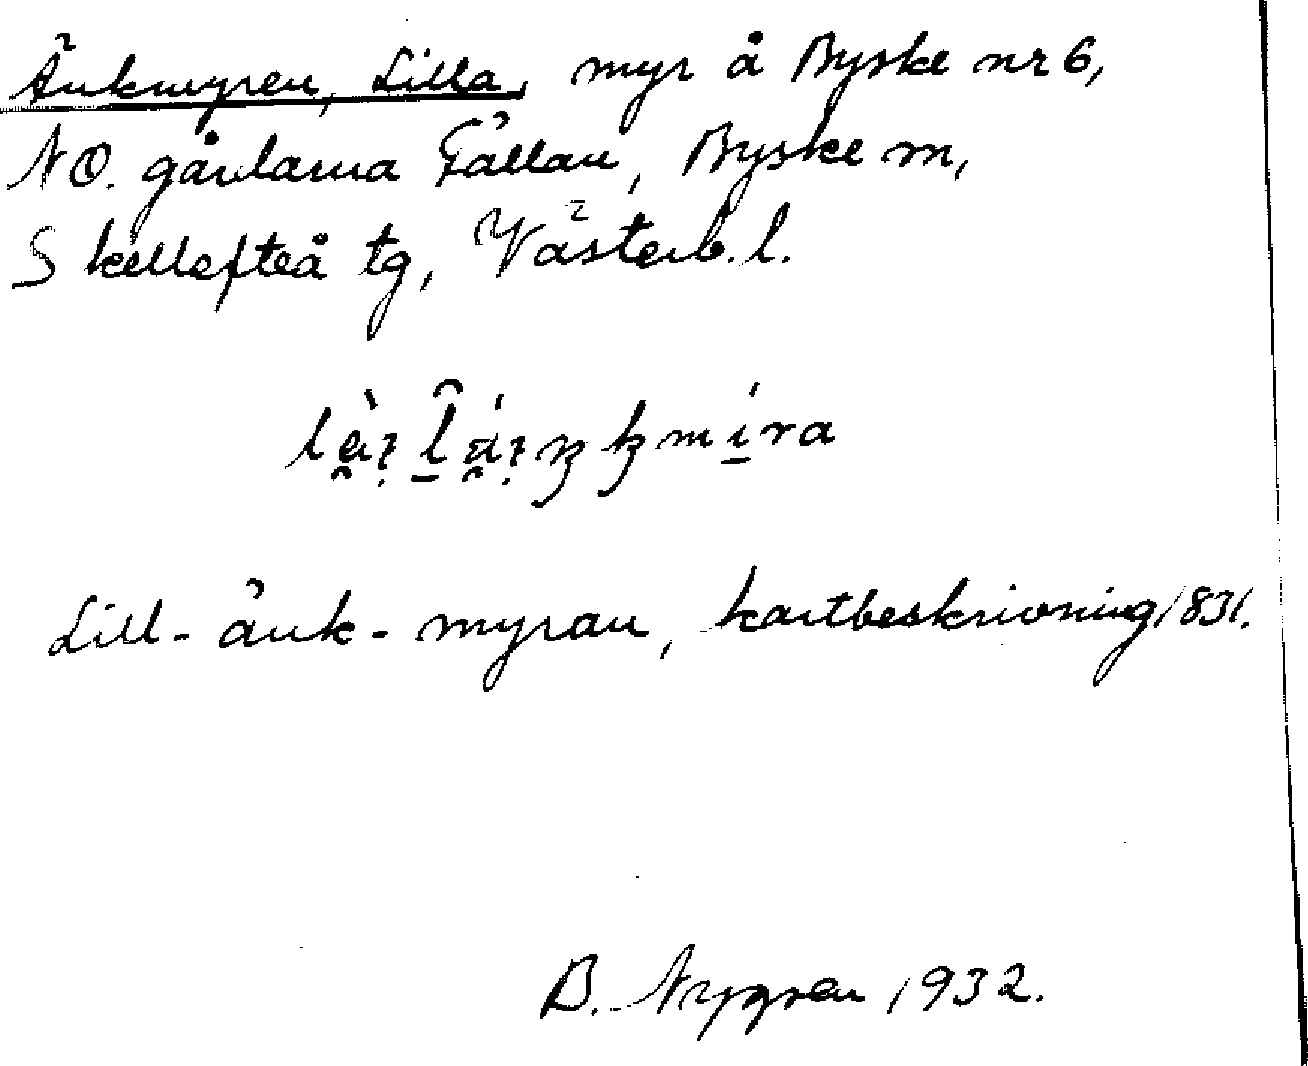 Änkmyren, Lilla, myr å Byske nr 6,
NO. gårdarna Fällan, Byske sn,
Skellefteå tg, Västerb. l.
Lill-änk-myran, kartbeskrivning 1831.
B. Nygren 1932.